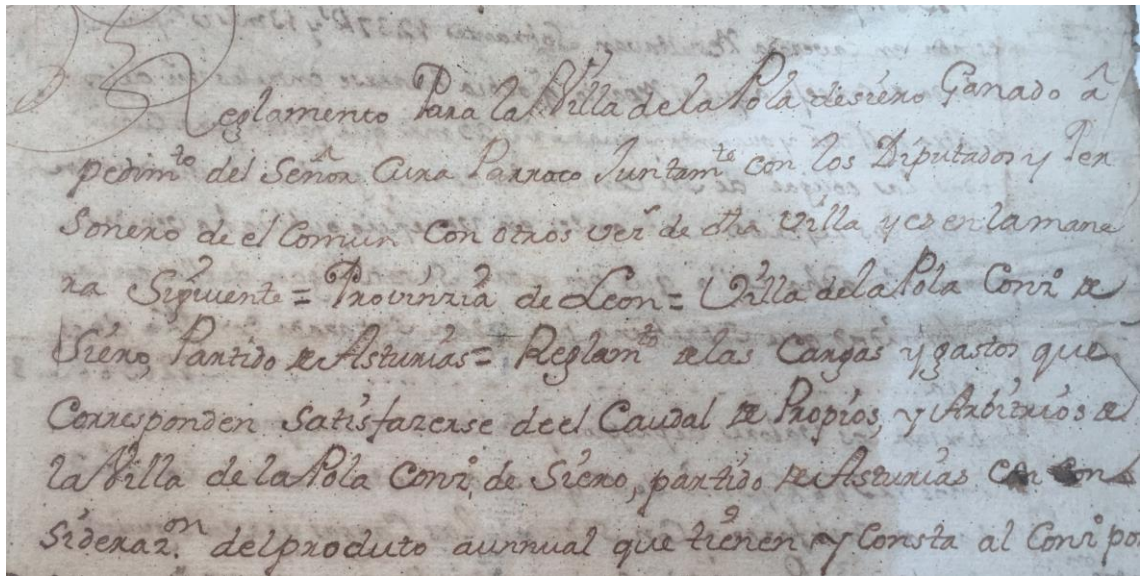 Reglamento Para la Villa de la Pola desiero Ganado â
pedim.to del Señor Cura Parroco Juntam.te con los Diputados y Per
sonero de el Comun Con otros vez.s de dha Villa y es en la mane
ra Siguiente = Provinzia de Leon = Villa de la Pola Conz.o de
Siero, Partido de Asturias = Reglam.to de las Cargas y gastos que
Corresponden Satisfazerse de el Caudal de Propios, y Arbitrios de
la Villa de la Pola Conz.o de Siero, partido de Asturias con
Sideraz.on del produto annual que tienen y Consta al Conz.o por